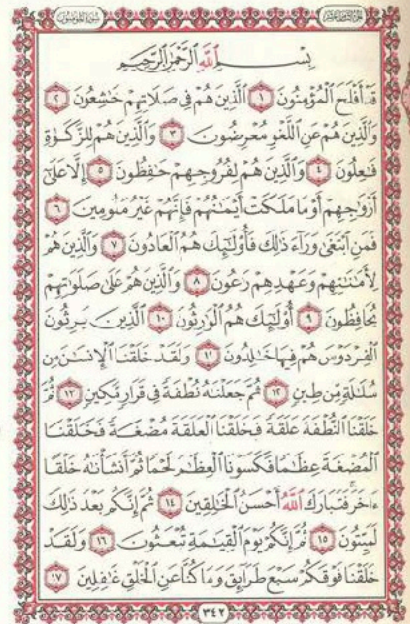 الجزء الثامن عشر سورة المؤمنون
بِسْمِ اللَّهِ الرَّحْمَٰنِ الرَّحِيمِ
قَدْ أَفْلَحَ الْمُؤْمِنُونَ ١ الَّذِينَ هُمْ فِي صَلَاتِهِمْ خَٰشِعُونَ ٢
وَالَّذِينَ هُمْ عَنِ اللَّغْوِ مُعْرِضُونَ ٣ وَالَّذِينَ هُمْ لِلزَّكَوٰةِ
فَٰعِلُونَ ٤ وَالَّذِينَ هُمْ لِفُرُوجِهِمْ حَٰفِظُونَ ٥ إِلَّا عَلَىٰٓ
أَزْوَٰجِهِمْ أَوْ مَا مَلَكَتْ أَيْمَٰنُهُمْ فَإِنَّهُمْ غَيْرُ مَلُومِينَ ٦
فَمَنِ ابْتَغَىٰ وَرَآءَ ذَٰلِكَ فَأُو۟لَٰٓئِكَ هُمُ الْعَادُونَ ٧ وَالَّذِينَ هُمْ
لِأَمَٰنَٰتِهِمْ وَعَهْدِهِمْ رَٰعُونَ ٨ وَالَّذِينَ هُمْ عَلَىٰ صَلَوَٰتِهِمْ
يُحَافِظُونَ ٩ أُو۟لَٰٓئِكَ هُمُ الْوَٰرِثُونَ ١٠ الَّذِينَ يَرِثُونَ
الْفِرْدَوْسَ هُمْ فِيهَا خَٰلِدُونَ ١١ وَلَقَدْ خَلَقْنَا الْإِنسَٰنَ مِن
سُلَٰلَةٍ مِّن طِينٍ ١٢ ثُمَّ جَعَلْنَٰهُ نُطْفَةً فِي قَرَارٍ مَّكِينٍ ١٣ ثُمَّ
خَلَقْنَا النُّطْفَةَ عَلَقَةً فَخَلَقْنَا الْعَلَقَةَ مُضْغَةً فَخَلَقْنَا
الْمُضْغَةَ عِظَٰمًا فَكَسَوْنَا الْعِظَٰمَ لَحْمًا ثُمَّ أَنشَأْنَٰهُ خَلْقًا
ءَاخَرَ فَتَبَارَكَ اللَّهُ أَحْسَنُ الْخَٰلِقِينَ ١٤ ثُمَّ إِنَّكُم بَعْدَ ذَٰلِكَ
لَمَيِّتُونَ ١٥ ثُمَّ إِنَّكُمْ يَوْمَ الْقِيَٰمَةِ تُبْعَثُونَ ١٦ وَلَقَدْ
خَلَقْنَا فَوْقَكُمْ سَبْعَ طَرَآئِقَ وَمَا كُنَّا عَنِ الْخَلْقِ غَٰفِلِينَ ١٧
٣٤٢